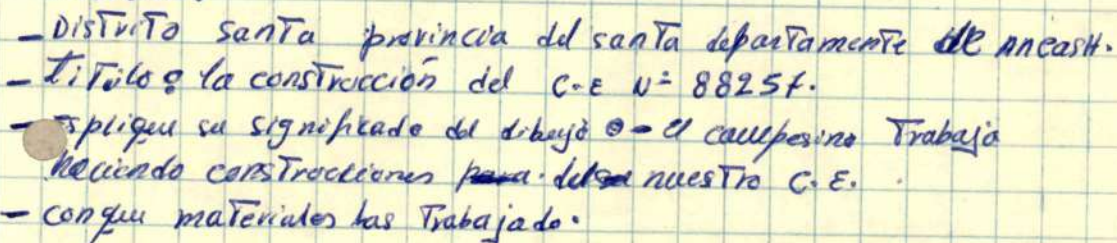 - Distrito santa provincia del santa departamente de ANCASH.
- titulo: la construcción del C.E Nº 88257.
- Esplique su significado del dibujo :- el campesino Trabaja
haciendo construcciones para del nuestro C.E.
- conque materiales has Trabajado.